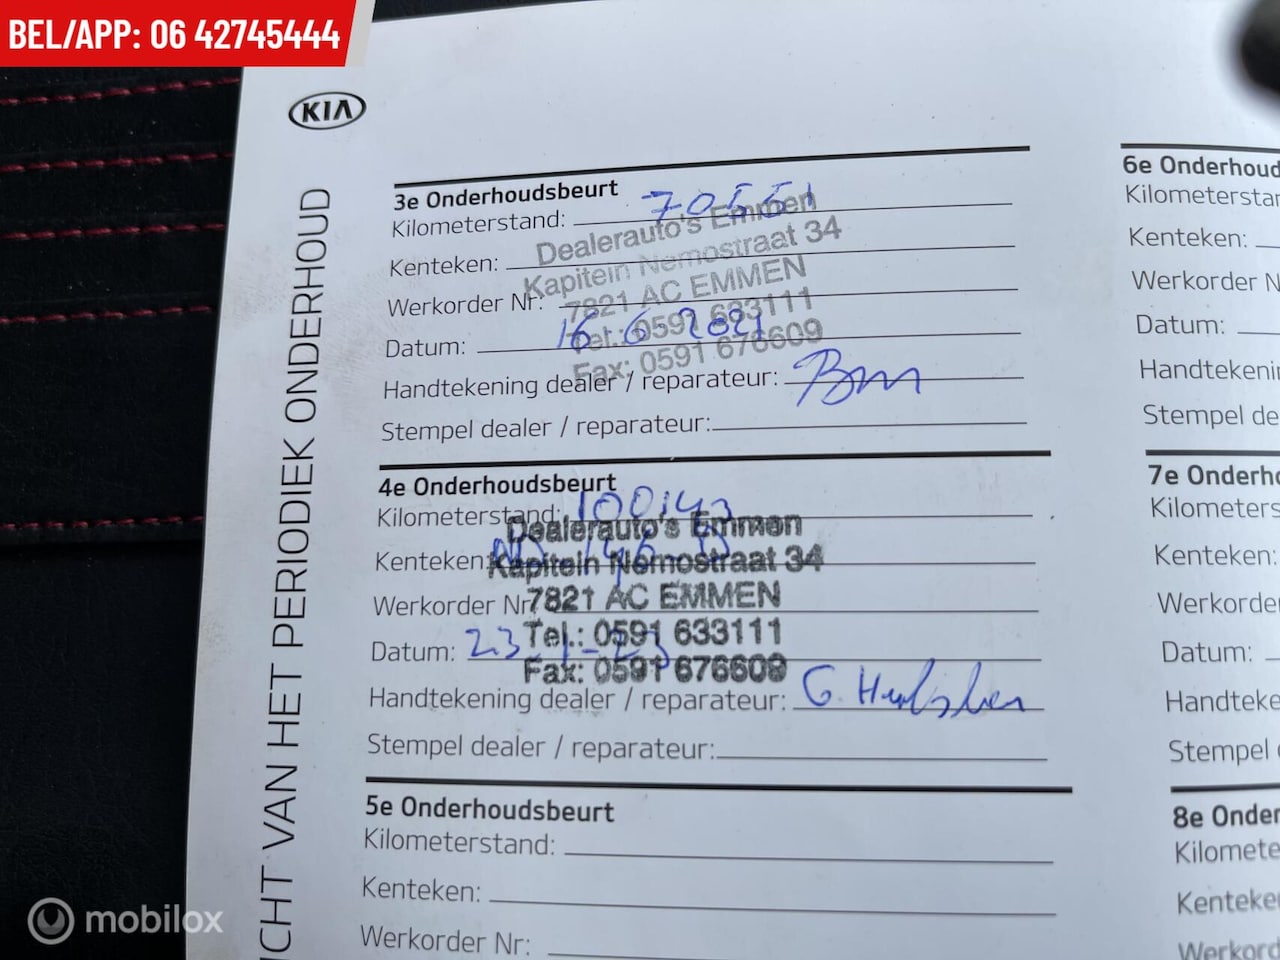 BEL/APP: 06 42745444
KIA
CHT VAN HET PERIODIEK ONDERHOUD
3e Onderhoudsbeurt
Kilometerstand: 70551
Dealerauto's Emmen
Kenteken:
Kapitein Nemostraat 34
Werkorder Nr:
7821 AC EMMEN
Tel.: 0591 633111
Datum: 16-6-2021
Fax: 0591 676609
Handtekening dealer / reparateur:
Stempel dealer / reparateur:
4e Onderhoudsbeurt
Kilometerstand: 100143
Dealerauto's Emmen
Kenteken:
Kapitein Nemostraat 34
Werkorder Nr
7821 AC EMMEN
Tel.: 0591 633111
Datum: 23-1-23
Fax: 0591 676609
Handtekening dealer / reparateur:
Stempel dealer / reparateur:
5e Onderhoudsbeurt
Kilometerstand:
Kenteken:
Werkorder Nr:
6e Onderhoud
Kilometerstar
Kenteken:
Werkorder N
Datum:
Handtekenin
Stempel de
7e Onderho
Kilometers
Kenteken:
Werkorde
Datum:
Handteke
Stempel
8e Onder
Kilomete
Kenteke
Werkord
mobilox